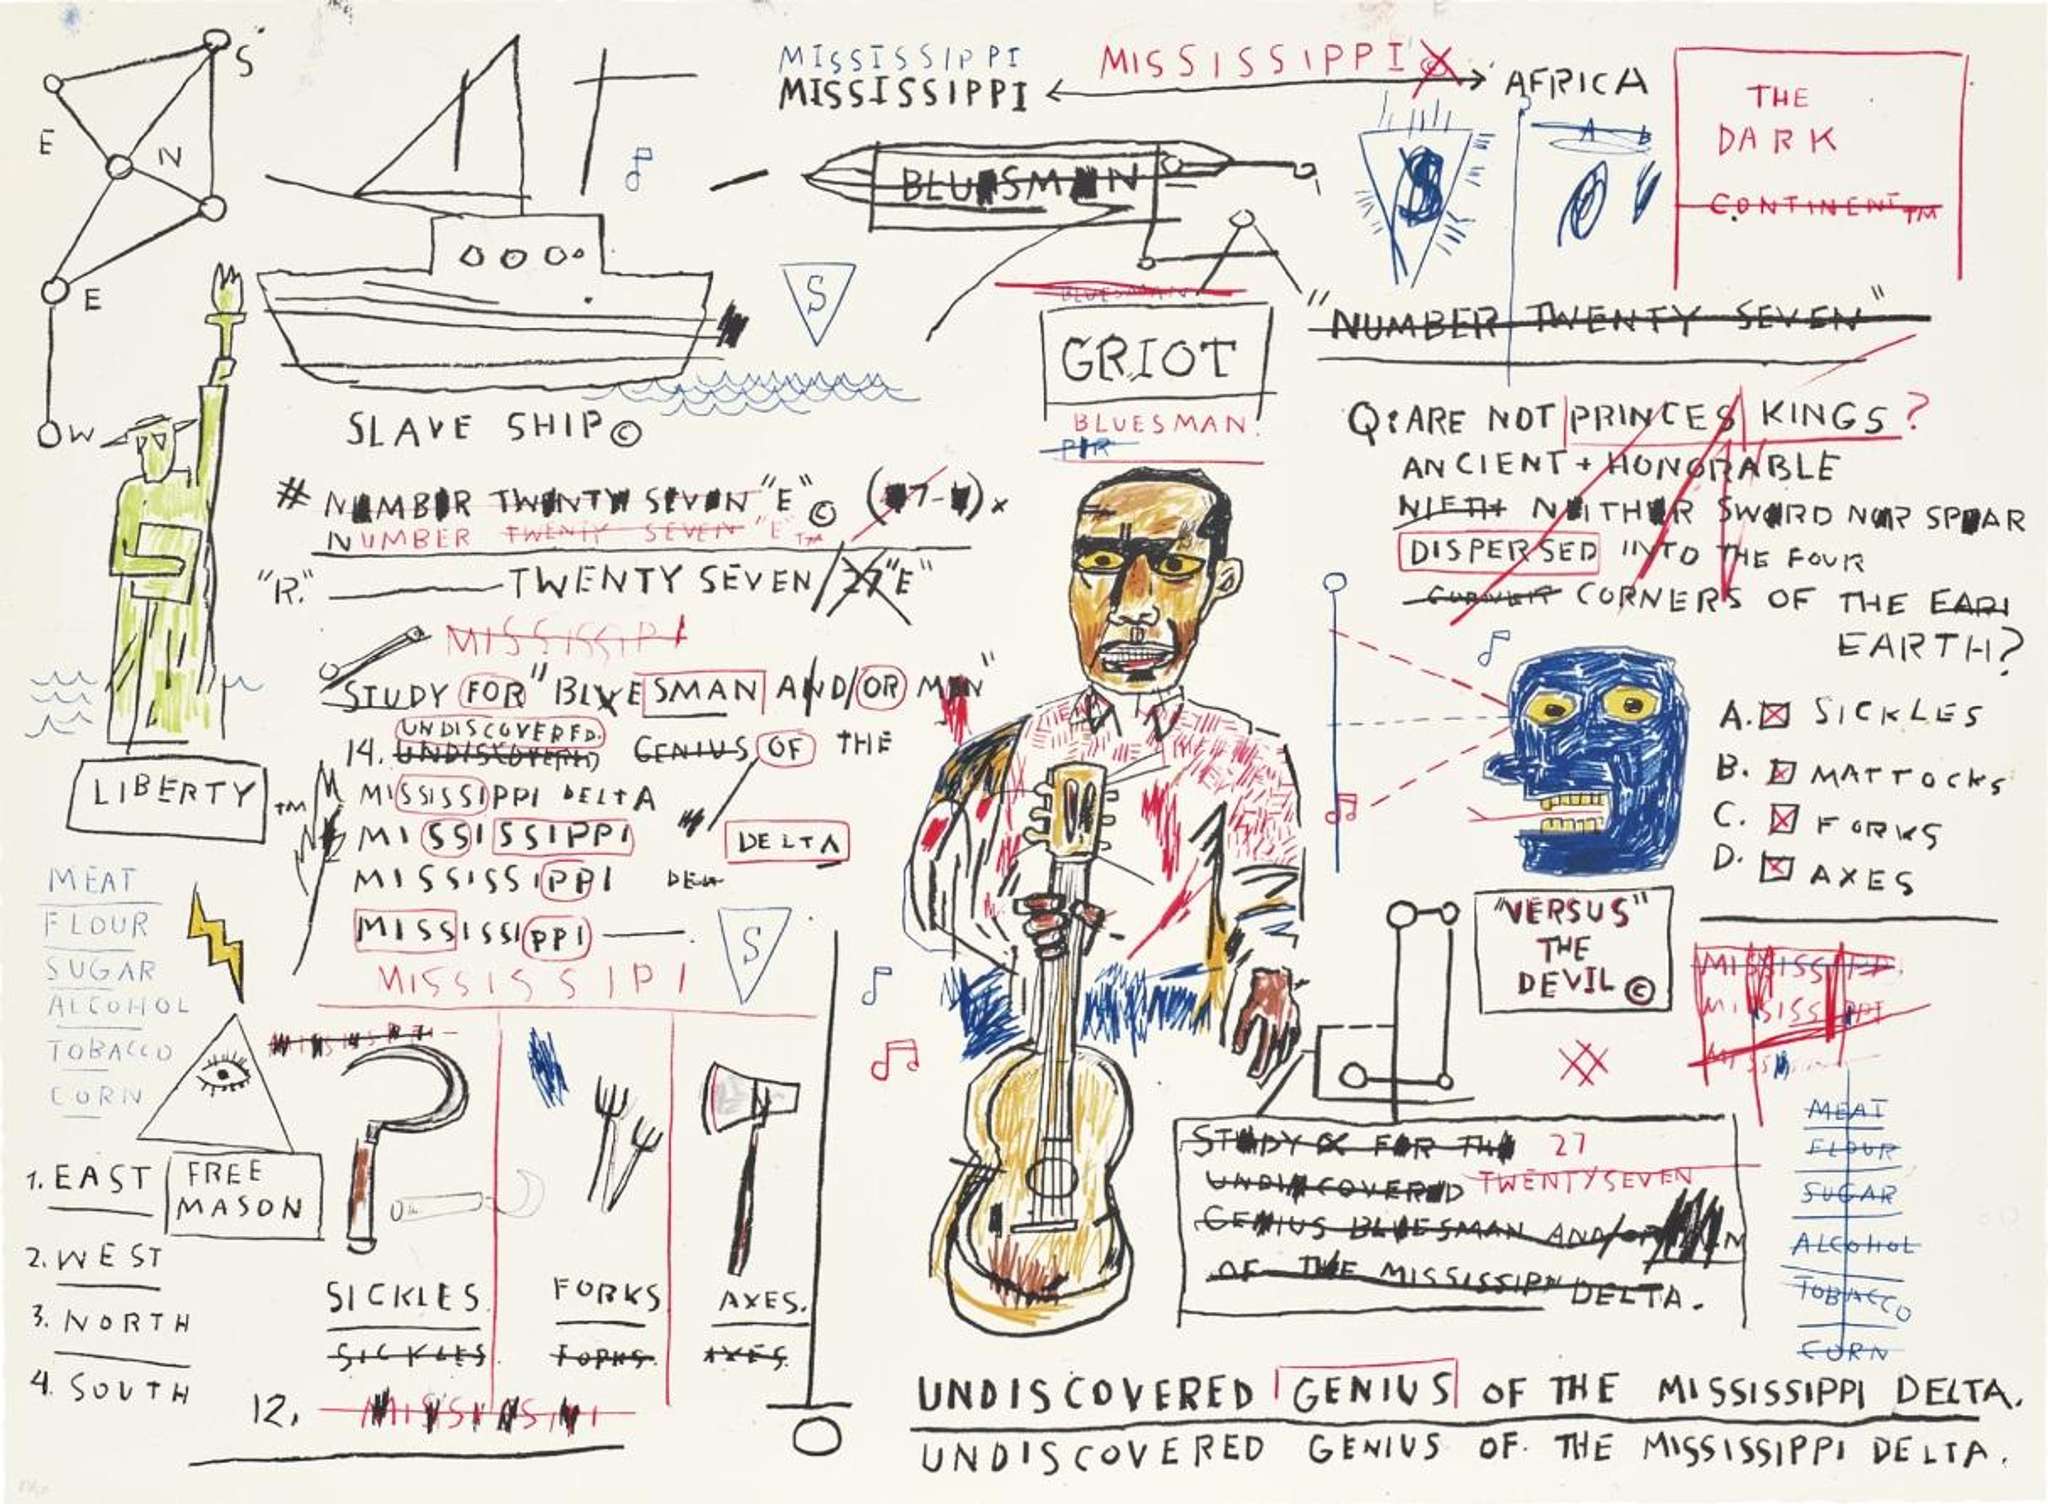 S
E
N
E
W
MISSISSIPPI
MISSISSIPPI
MISSISSIPPI
AFRICA
THE
DARK
CONTINENT TM
BLUESMAN
S
A B
S
BLUESMAN
GRIOT
BLUESMAN.
"NUMBER TWENTY SEVEN"
SLAVE SHIP ©
# NUMBER TWENTY SEVEN "E" ©
NUMBER TWENTY SEVEN "E" TM
"R." TWENTY SEVEN/27 "E"
MISSISSIPI
STUDY FOR "BLUESMAN AND/OR MAN"
UNDISCOVERED.
14. UNDISCOVERED GENIUS OF THE
MISSISSIPPI DELTA
MISSISSIPPI
DELTA
MISSISSIPPI DELA
MISSISSIPPI
S
MISSISSIPI
LIBERTY TM
MEAT
FLOUR
SUGAR
ALCOHOL
TOBACCO
CORN
FREE
MASON
1. EAST
2. WEST
3. NORTH
4. SOUTH
SICKLES.
FORKS
AXES.
SICKLES.
FORKS.
AXES.
12.
Q: ARE NOT PRINCES KINGS?
ANCIENT + HONORABLE
NIETH NEITHER SWORD NOR SPEAR
DISPERSED INTO THE FOUR
CORNER CORNERS OF THE EARI
EARTH?
A. SICKLES
B. MATTOCKS
C. FORKS
D. AXES
"VERSUS"
THE
DEVIL ©
MISSISSIPPI
MISSISSIPPI
STUDY FOR THE 27
UNDISCOVERED TWENTYSEVEN
GENIUS BLUESMAN AND/OR MAN
OF THE MISSISSIPPI DELTA.
MEAT
FLOUR
SUGAR
ALCOHOL
TOBACCO
CORN
UNDISCOVERED GENIUS OF THE MISSISSIPPI DELTA.
UNDISCOVERED GENIUS OF. THE MISSISSIPPI DELTA.